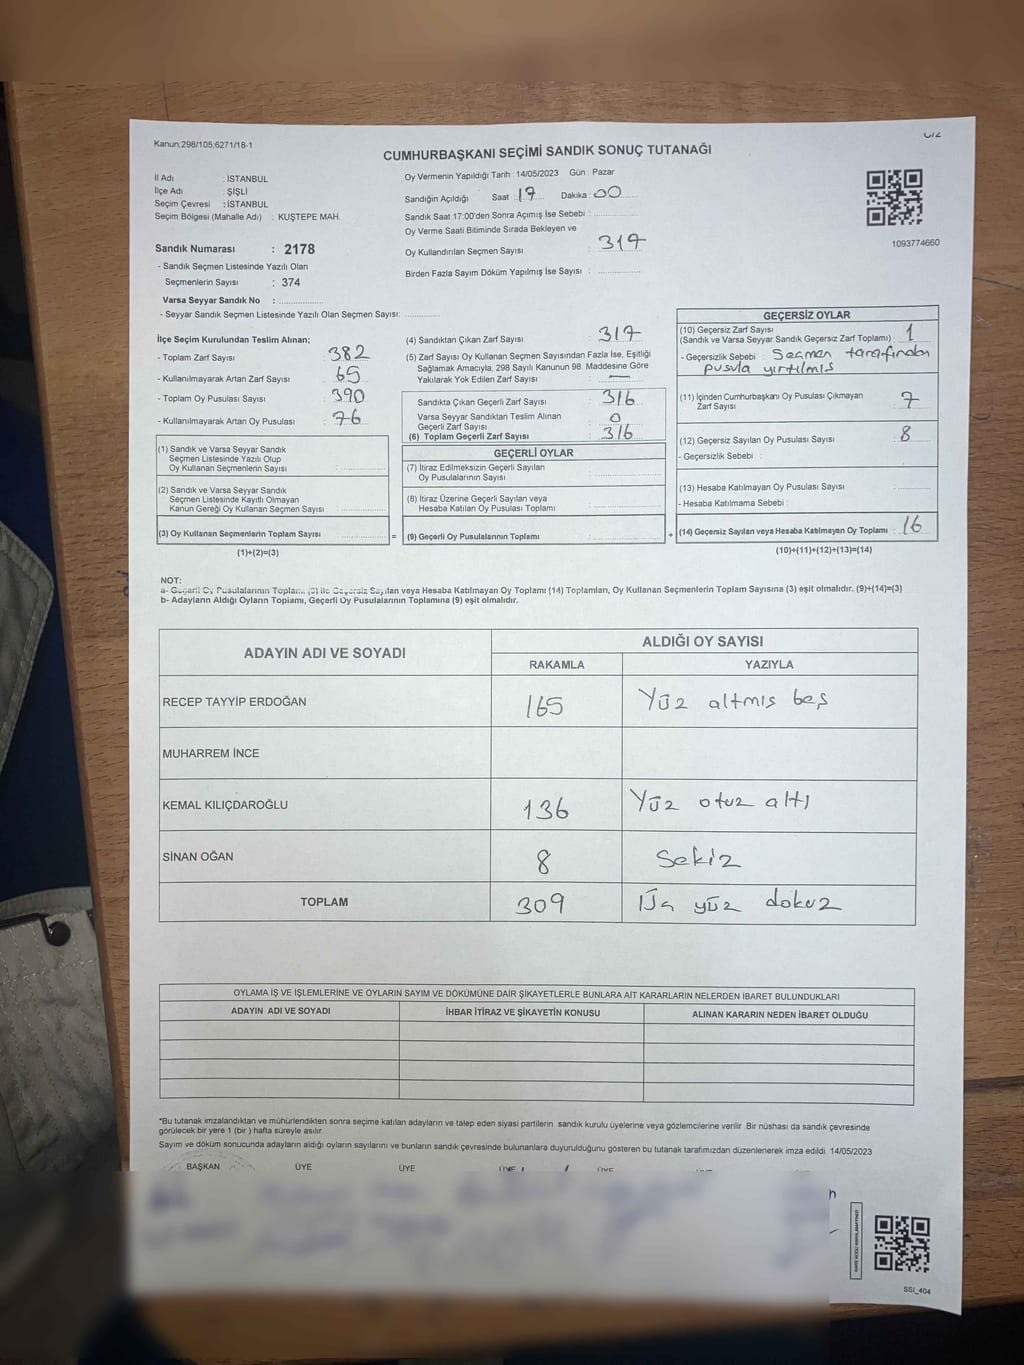 Kanun;298/105;6271/18-1
CUMHURBAŞKANI SEÇİMİ SANDIK SONUÇ TUTANAĞI
İl Adı : İSTANBUL
İlçe Adı : ŞİŞLİ
Seçim Çevresi : İSTANBUL
Seçim Bölgesi (Mahalle Adı) : KUŞTEPE MAH.
Oy Vermenin Yapıldığı Tarih : 14/05/2023 Gün : Pazar
Sandığın Açıldığı Saat : 17 Dakika : 00
Sandık Saat 17:00'den Sonra Açımış İse Sebebi :
Oy Verme Saati Bitiminde Sırada Bekleyen ve
Oy Kullandırılan Seçmen Sayısı : 317
Birden Fazla Sayım Döküm Yapılmış İse Sayısı :
1093774660
Sandık Numarası : 2178
- Sandık Seçmen Listesinde Yazılı Olan
Seçmenlerin Sayısı : 374
Varsa Seyyar Sandık No :
- Seyyar Sandık Seçmen Listesinde Yazılı Olan Seçmen Sayısı:
İlçe Seçim Kurulundan Teslim Alınan;
- Toplam Zarf Sayısı : 382
- Kullanılmayarak Artan Zarf Sayısı : 65
- Toplam Oy Pusulası Sayısı : 390
- Kullanılmayarak Artan Oy Pusulası : 76
(1) Sandık ve Varsa Seyyar Sandık
Seçmen Listesinde Yazılı Olup
Oy Kullanan Seçmenlerin Sayısı :
(2) Sandık ve Varsa Seyyar Sandık
Seçmen Listesinde Kayıtlı Olmayan
Kanun Gereği Oy Kullanan Seçmen Sayısı :
(3) Oy Kullanan Seçmenlerin Toplam Sayısı :
(1)+(2)=(3)
(4) Sandıktan Çıkan Zarf Sayısı : 317
(5) Zarf Sayısı Oy Kullanan Seçmen Sayısından Fazla İse, Eşitliği
Sağlamak Amacıyla; 298 Sayılı Kanunun 98. Maddesine Göre
Yakılarak Yok Edilen Zarf Sayısı : —
Sandıkta Çıkan Geçerli Zarf Sayısı : 316
Varsa Seyyar Sandıktan Teslim Alınan
Geçerli Zarf Sayısı : 0
(6) Toplam Geçerli Zarf Sayısı : 316
GEÇERLİ OYLAR
(7) İtiraz Edilmeksizin Geçerli Sayılan
Oy Pusulalarının Sayısı :
(8) İtiraz Üzerine Geçerli Sayılan veya
Hesaba Katılan Oy Pusulası Toplamı :
= (9) Geçerli Oy Pusulalarının Toplamı :
GEÇERSİZ OYLAR
(10) Geçersiz Zarf Sayısı
(Sandık ve Varsa Seyyar Sandık Geçersiz Zarf Toplamı) : 1
- Geçersizlik Sebebi : Seçmen tarafından
pusula yırtılmış
(11) İçinden Cumhurbaşkanı Oy Pusulası Çıkmayan
Zarf Sayısı : 7
(12) Geçersiz Sayılan Oy Pusulası Sayısı : 8
- Geçersizlik Sebebi :
(13) Hesaba Katılmayan Oy Pusulası Sayısı :
- Hesaba Katılmama Sebebi :
+ (14) Geçersiz Sayılan veya Hesaba Katılmayan Oy Toplamı : 16
(10)+(11)+(12)+(13)=(14)
NOT:
a- Geçerli Oy Pusulalarının Toplamı (9) ile Geçersiz Sayılan veya Hesaba Katılmayan Oy Toplamı (14) Toplamları, Oy Kullanan Seçmenlerin Toplam Sayısına (3) eşit olmalıdır. (9)+(14)=(3)
b- Adayların Aldığı Oyların Toplamı, Geçerli Oy Pusulalarının Toplamına (9) eşit olmalıdır.
ADAYIN ADI VE SOYADI
ALDIĞI OY SAYISI
RAKAMLA YAZIYLA
RECEP TAYYİP ERDOĞAN 165 Yüz altmış beş
MUHARREM İNCE
KEMAL KILIÇDAROĞLU 136 Yüz otuz altı
SİNAN OĞAN 8 Sekiz
TOPLAM 309 yüz dokuz
OYLAMA İŞ VE İŞLEMLERİNE VE OYLARIN SAYIM VE DÖKÜMÜNE DAİR ŞİKAYETLERLE BUNLARA AİT KARARLARIN NELERDEN İBARET BULUNDUKLARI
ADAYIN ADI VE SOYADI İHBAR İTİRAZ VE ŞİKAYETİN KONUSU ALINAN KARARIN NEDEN İBARET OLDUĞU
*Bu tutanak imzalandıktan ve mühürlendikten sonra seçime katılan adayların ve talep eden siyasi partilerin sandık kurulu üyelerine veya gözlemcilerine verilir. Bir nüshası da sandık çevresinde
görülecek bir yere 1 (bir ) hafta süreyle asılır.
Sayım ve döküm sonucunda adayların aldığı oyların sayılarını ve bunların sandık çevresinde bulunanlara duyurulduğunu gösteren bu tutanak tarafımızdan düzenlenerek imza edildi. 14/05/2023
BAŞKAN ÜYE ÜYE ÜYE ÜYE
SSI_404